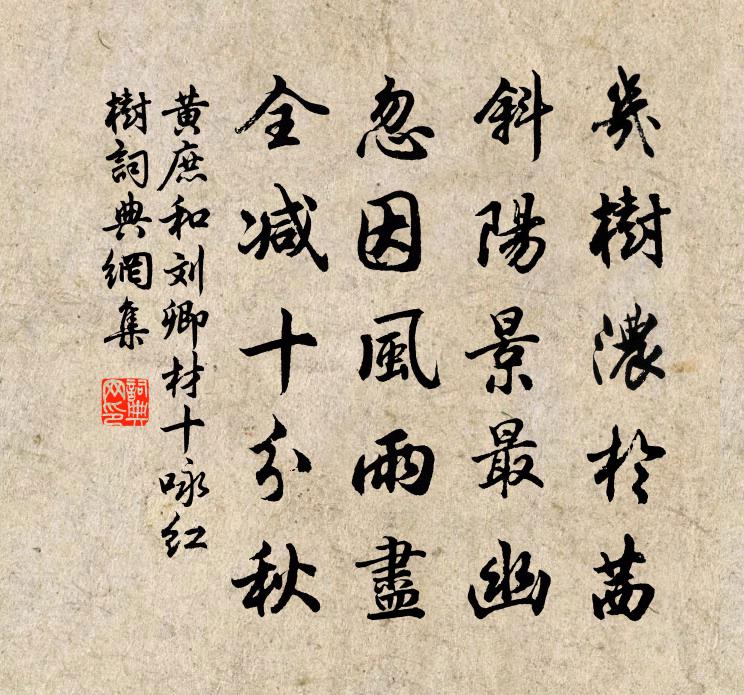 幾樹濃於茜
斜陽景最幽
忽因風雨盡
全減十分秋
黄庶和刘卿材十咏红
樹詞典網集
詞典网印